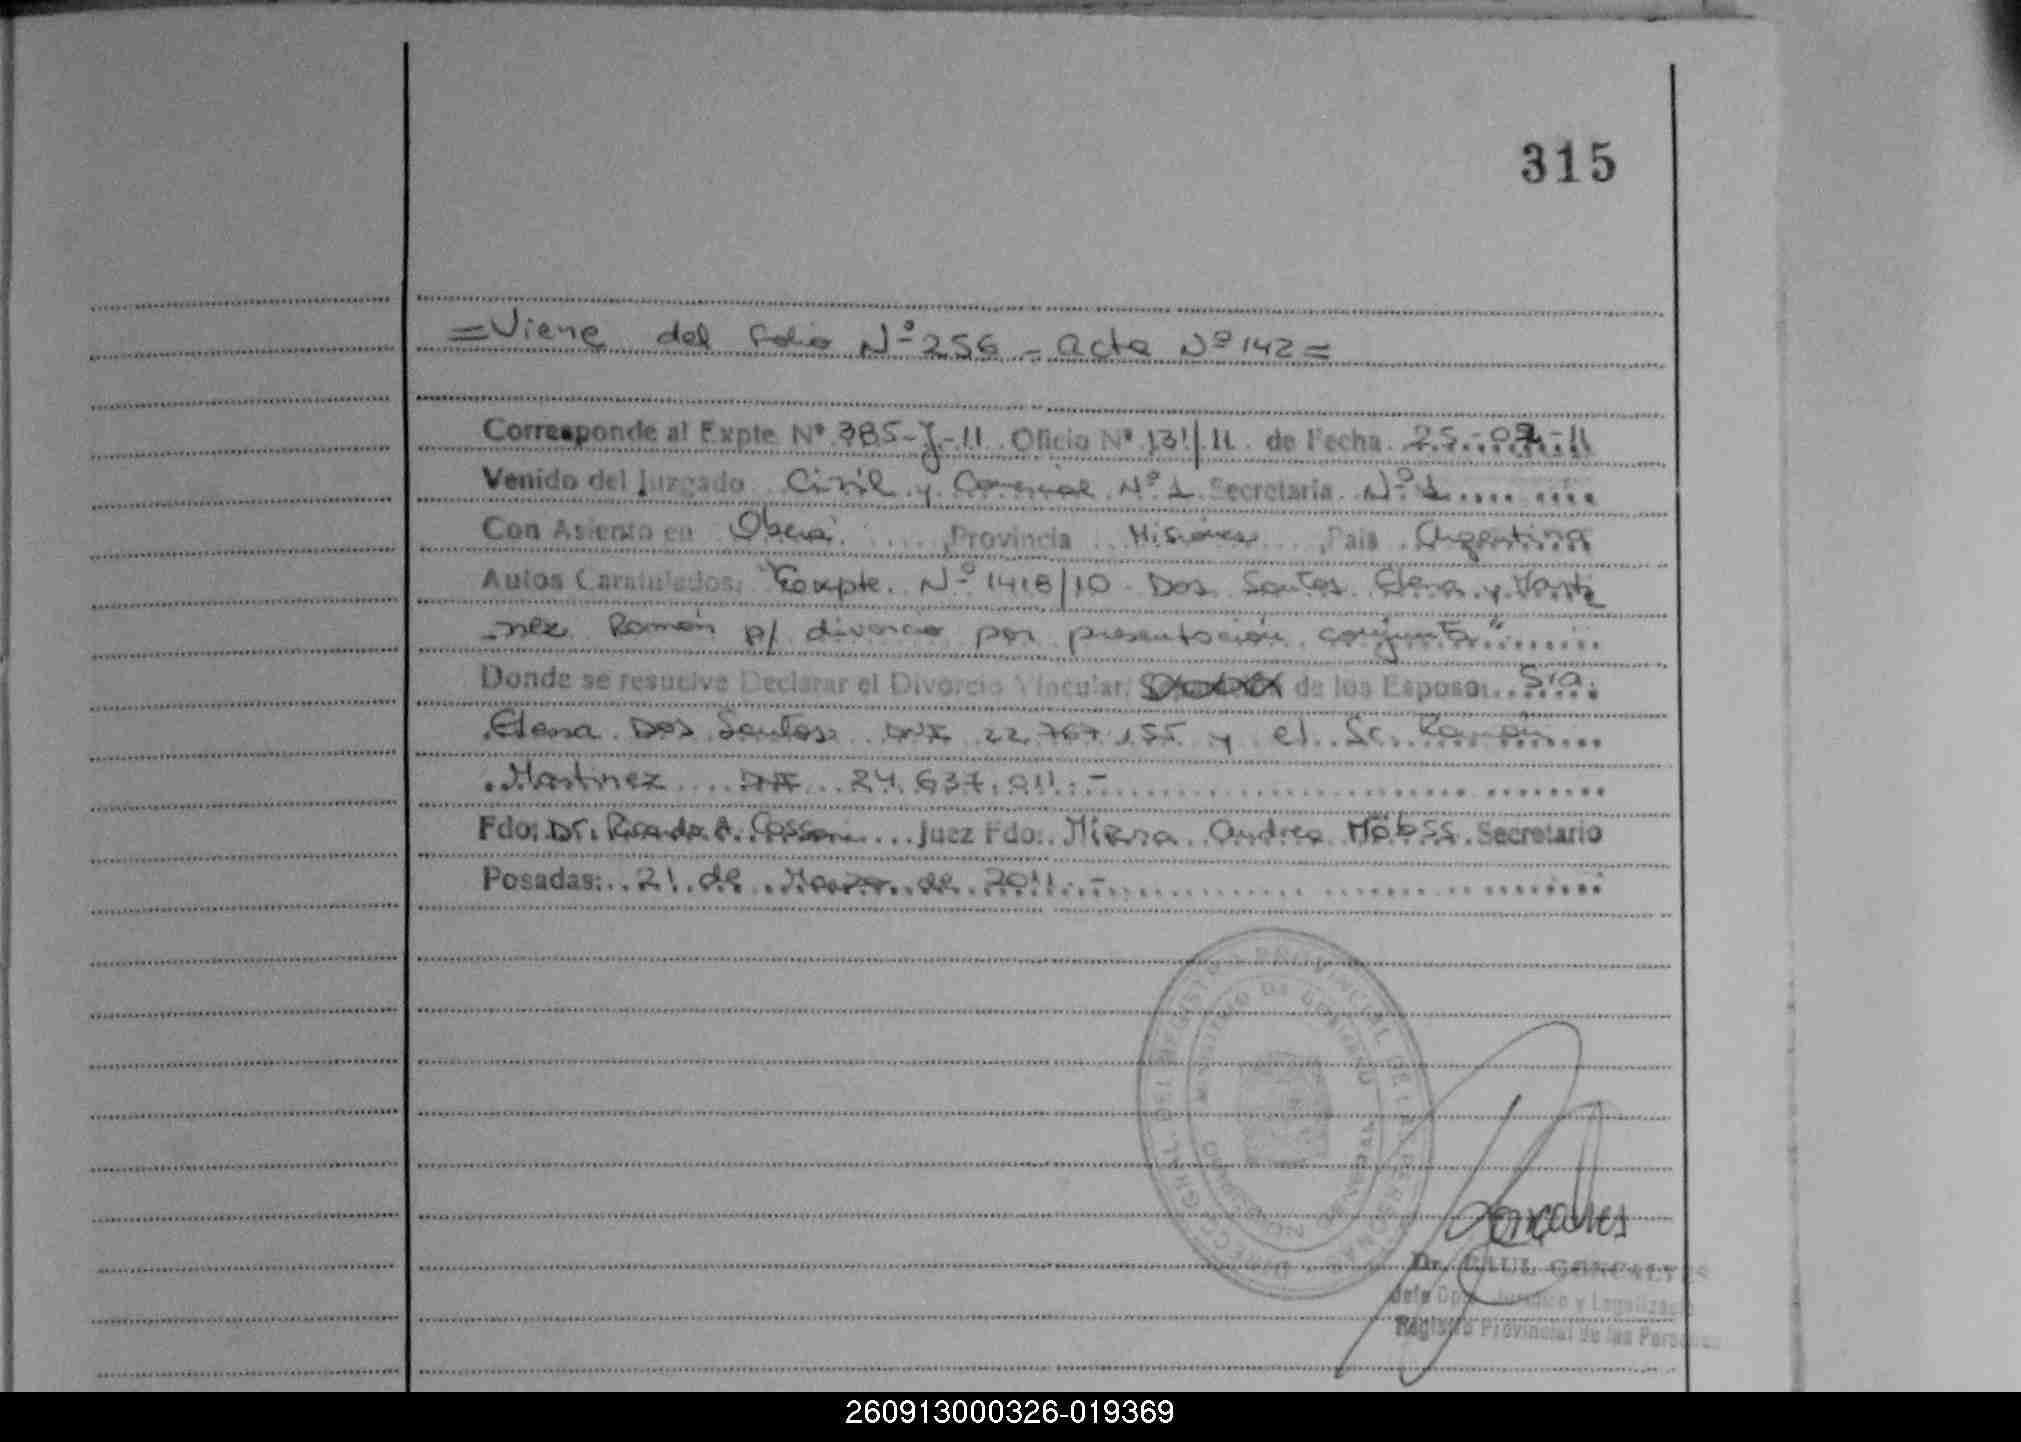 315
=Viene del folio Nº 256 - acta Nº 142=
Corresponde al Expte Nº 385-J-11 Oficio Nº 131/11 de Fecha 25-02-11
Venido del Juzgado Civil y Comercial Nº 1 Secretaría Nº 1
Con Asiento en Oberá Provincia Misiones País Argentina
Autos Caratulados: "Expte. Nº 1418/10 Dos Santos Elena y Marti
nez Ramón p/ divorcio por presentación conjunta"
Donde se resuelve Declarar el Divorcio Vincular de los Esposos Sra.
Elena Dos Santos DNI 22.767.155 y el Sr. Ramón
Martinez DNI 24.637.011.-
Fdo: Dr. Ricardo A. Juez Fdo: Andrea Secretario
Posadas: 21 de Marzo de 2011.-
DIRECC. GRAL. DEL REGISTRO PROVINCIAL DE LAS PERSONAS
MINISTERIO DE GOBIERNO
Goncalves
Dr. RAUL GONCALVES
Jefe Dpto. Jurídico y Legalizacio
Registro Provincial de las Personas
260913000326-019369